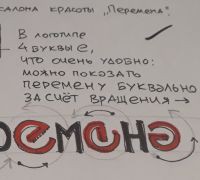 салона красоты „Перемена"
В логотипе
4 буквы е,
что очень удобно:
можно показать
перемену буквально
за счёт вращения →
ремена